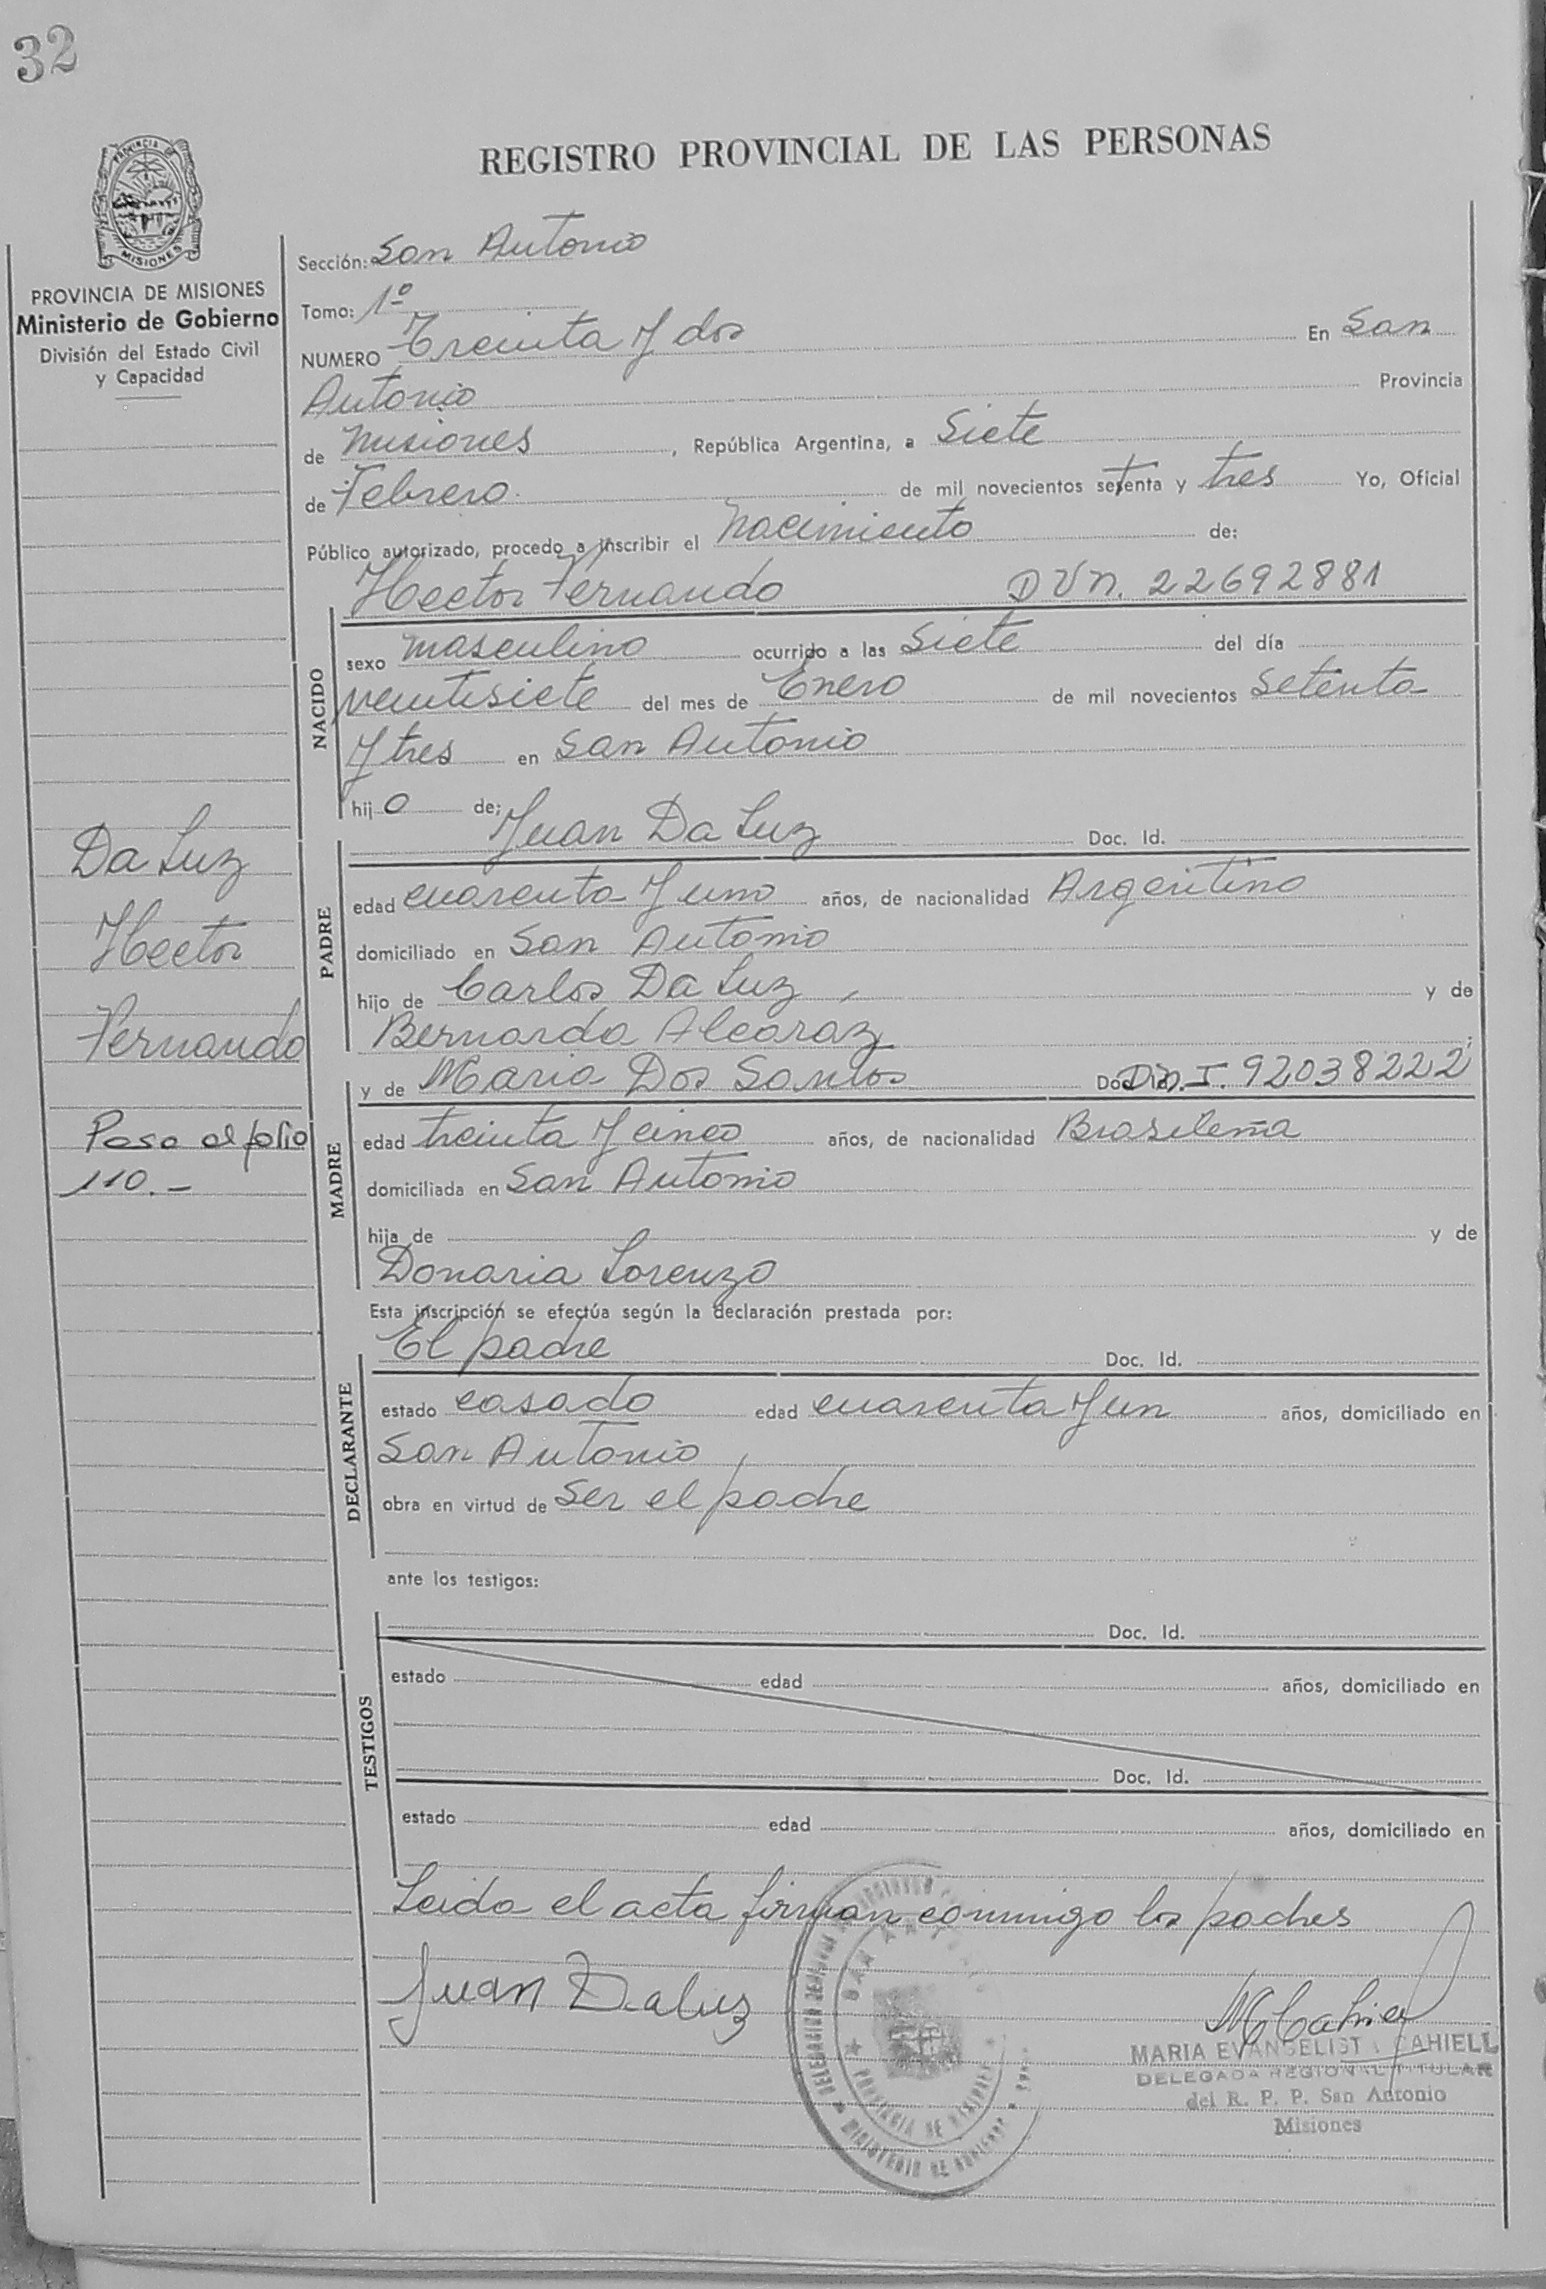 32
REGISTRO PROVINCIAL DE LAS PERSONAS
PROVINCIA DE
MISIONES
PROVINCIA DE MISIONES
Ministerio de Gobierno
División del Estado Civil
y Capacidad
Sección: San Antonio
Tomo: 1º
NUMERO Treinta y dos En San
Antonio Provincia
de Misiones, República Argentina, a Siete
de Febrero de mil novecientos setenta y tres Yo, Oficial
Público autorizado, procedo a inscribir el Nacimiento de:
Hector Fernando D U N. 22692881
NACIDO
sexo masculino ocurrido a las Siete del día
veintisiete del mes de Enero de mil novecientos Setenta
y tres en San Antonio
hijo de: Juan Da Luz Doc. Id.
PADRE
edad cuarenta y uno años, de nacionalidad Argentino
domiciliado en San Antonio
hijo de Carlos Da Luz, y de
Bernarda Alcaraz
y de Maria Dos Santos D.N.I. 92038222
MADRE
edad treinta y cinco años, de nacionalidad Brasileña
domiciliada en San Antonio
hija de y de
Donaria Lorenzo
Esta inscripción se efectúa según la declaración prestada por:
El padre Doc. Id.
DECLARANTE
estado casado edad cuarenta y un años, domiciliado en
San Antonio,
obra en virtud de Ser el padre
ante los testigos:
TESTIGOS
Doc. Id.
estado edad años, domiciliado en
Doc. Id.
estado edad años, domiciliado en
Leida el acta firman conmigo los padres
Juan Daluz
MARIA EVANGELISTA CAHIELL
DELEGADA REGIONAL TITULAR
del R. P. P. San Antonio
Misiones
SAN ANTONIO
PROVINCIA DE MISIONES
MINISTERIO DE GOBIERNO
Da Luz
Hector
Fernando
Paso al folio
110.-